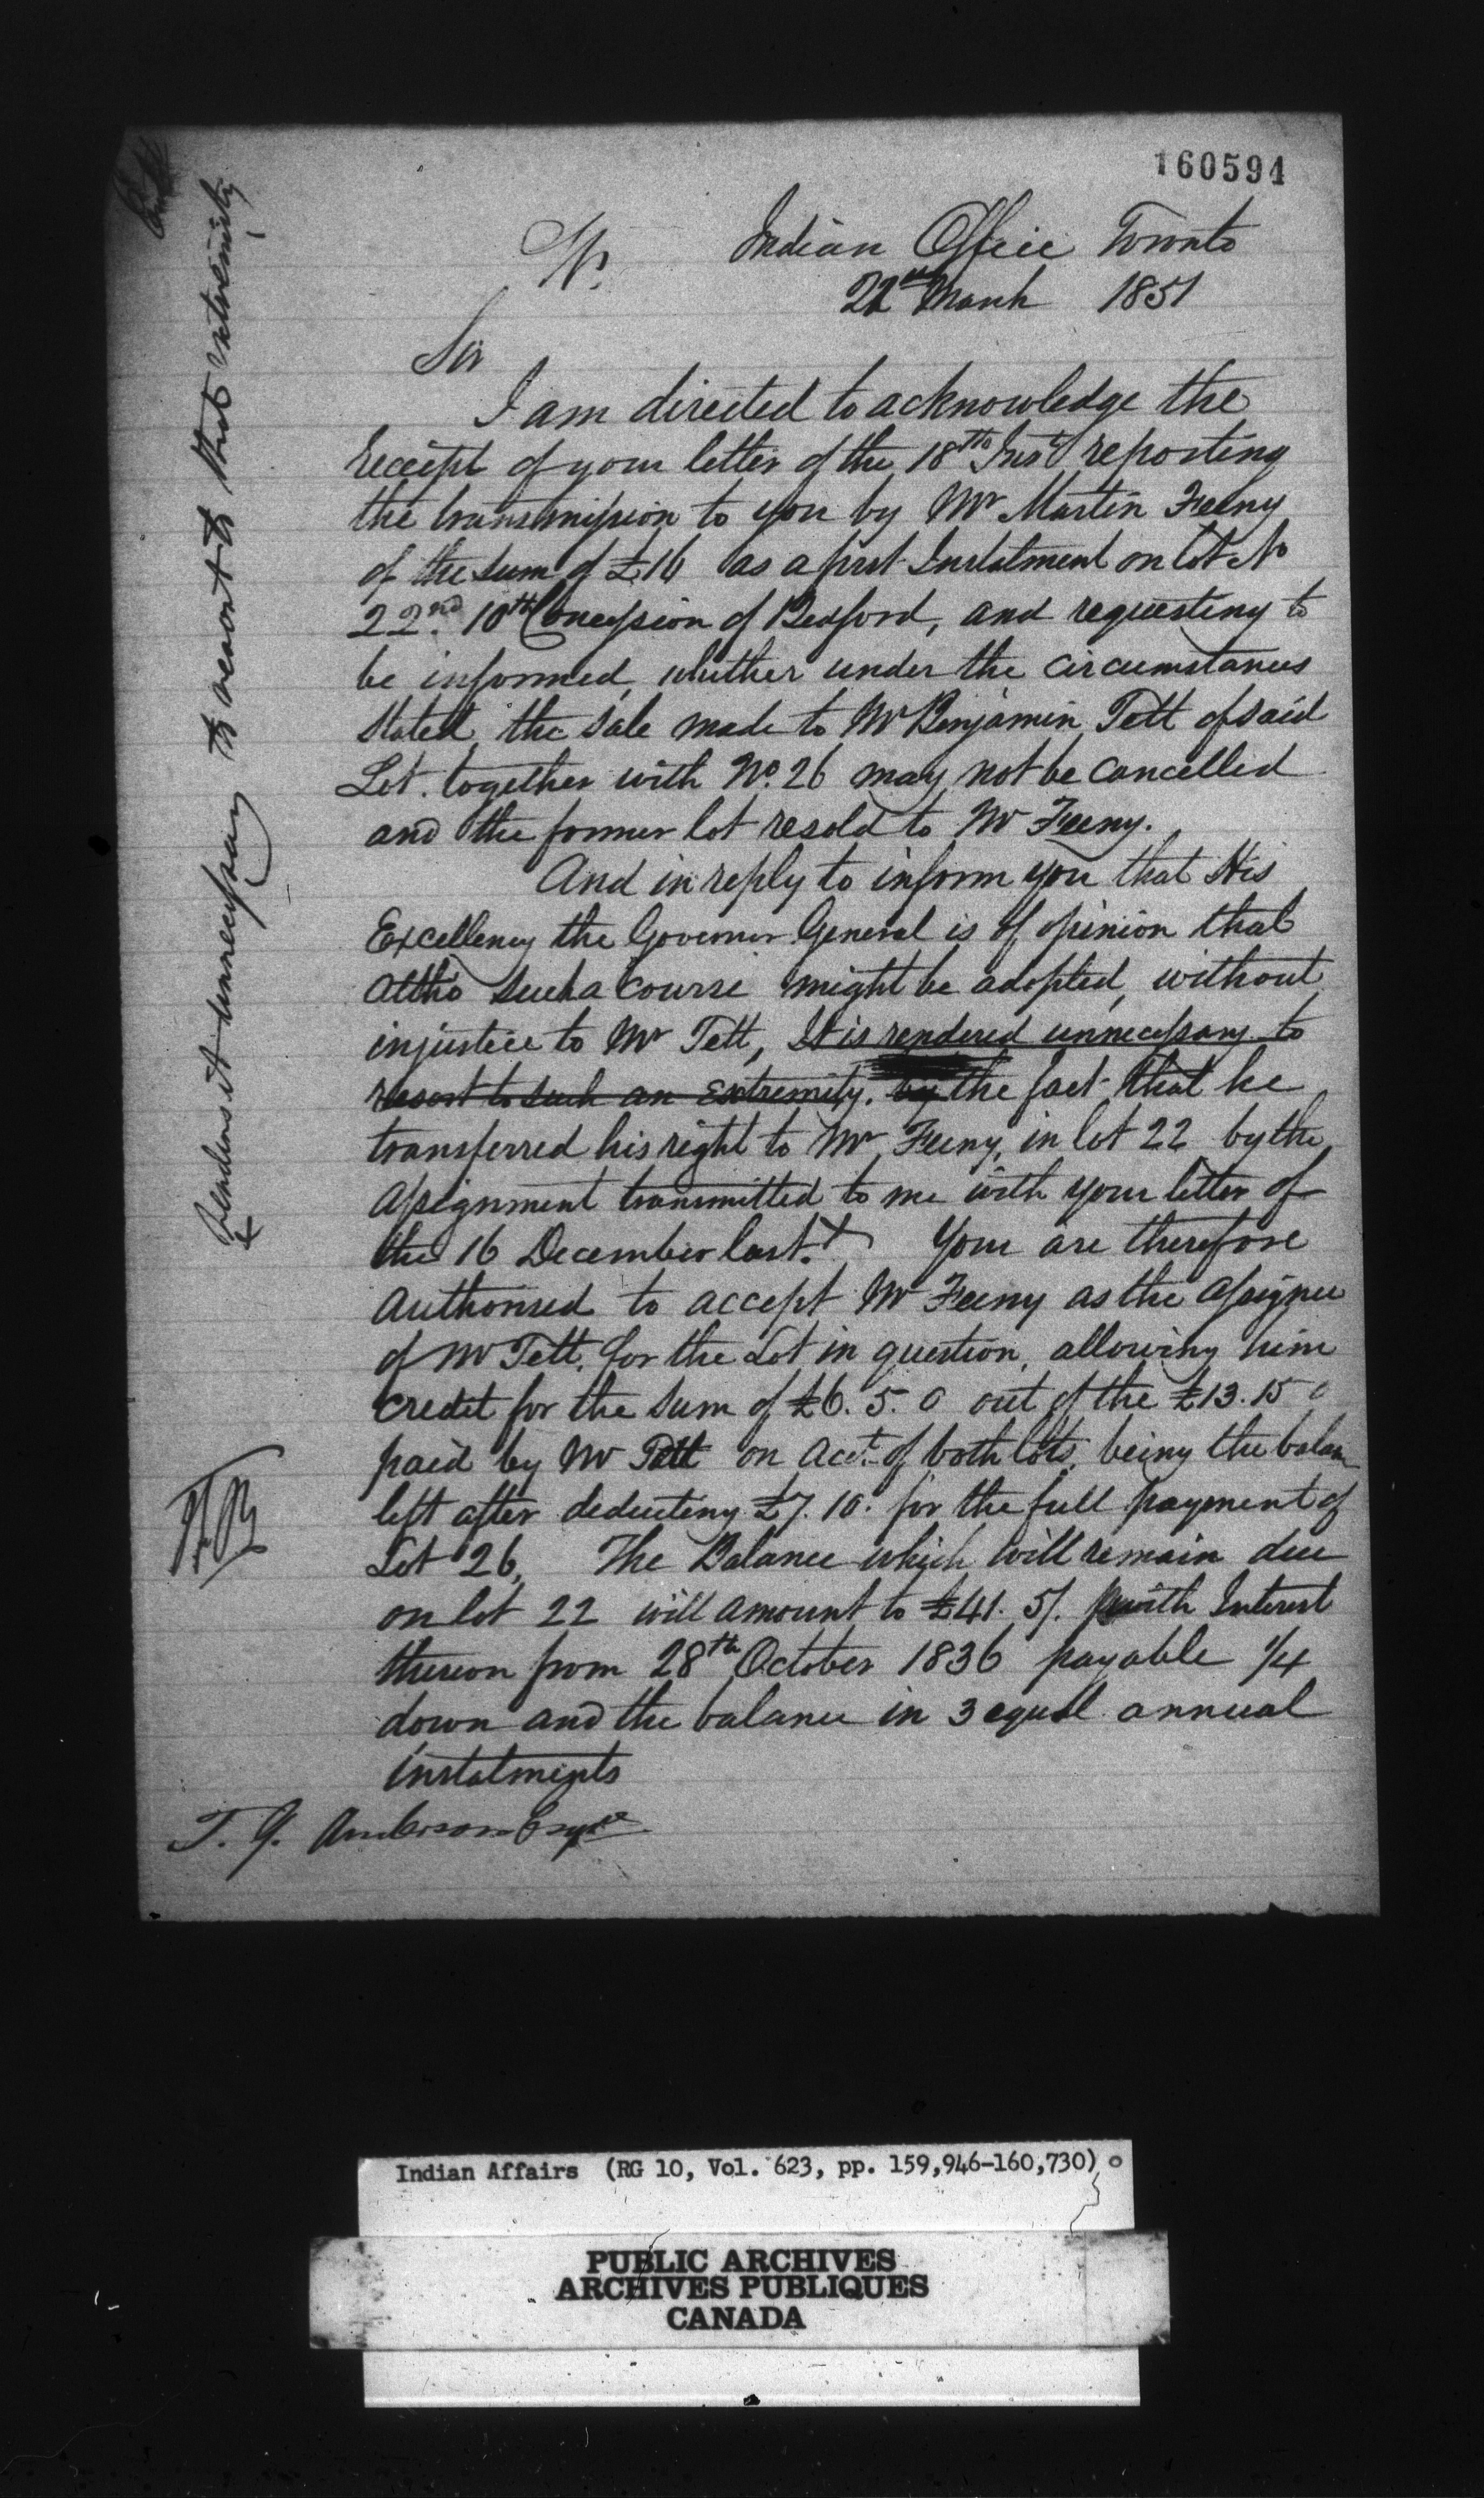 160594
Indian Office Toronto
22th March 1851
Sir
I am directed to acknowledge the
receipt of your letter of the 18th Inst reporting
the transmission to you by Mr Martin Feeny
of the sum of £16 as a first Instalment on lot No
22nd 10th Concession of Bedford, and requesting to
be informed, whether under the circumstances
stated, the sale made to Mr Benjamin Tett of said
Lot. together with No. 26 may not be cancelled
and the former lot resold to Mr Feeny.
And in reply to inform you that His
Excellency the Governor General is of opinion that
altho such a course might be adopted, without
injustice to Mr Tett, It is rendered unnecessary to
resort to such an extremity. by the fact that he
transferred his right to Mr Feeny, in lot 22 by the
assignment transmitted to me with your letter of
the 16 December last. + You are therefore
authorised to accept Mr Feeny as the assignee
of Mr Tett, for the Lot in question, allowing him
credit for the sum of £6. 5. 0 out of the £13. 15 0
paid by Mr Tett on acct. of both lots, being the balance
left after deducting £7. 10. for the full payment of
Lot 26, The Balance which will remain due
on lot 22 will amount to £41. 5/. with Interest
thereon from 28th October 1836 payable 1/4
down and the balance in 3 equal annual
instalments
T. G. Anderson Esqre
+ renders it unnecessary to resort to that extremity
Indian Affairs (RG 10, Vol. 623, pp. 159,946-160,730)
PUBLIC ARCHIVES
ARCHIVES PUBLIQUES
CANADA